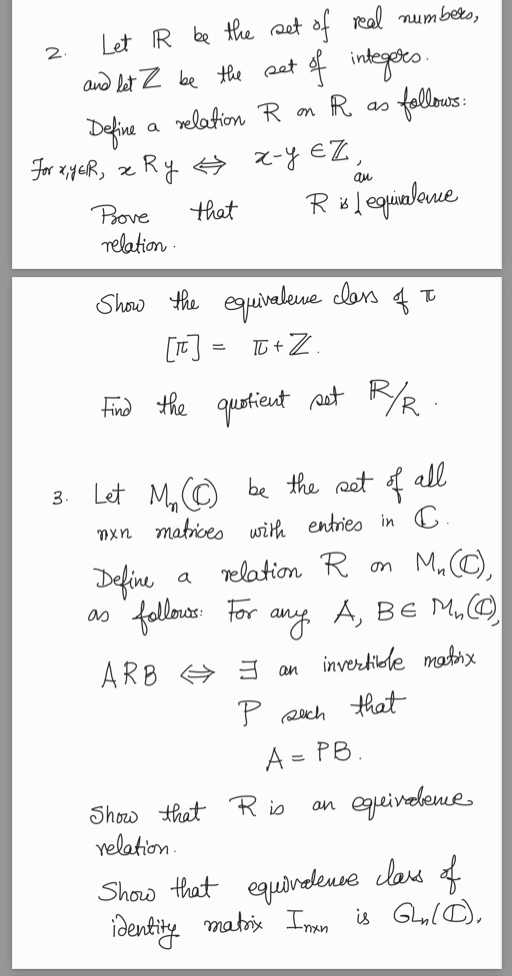 2. Let ℝ be the set of real numbers,
and let ℤ be the set of integers.
Define a relation R on ℝ as follows:
For x,y∈ℝ, x R y ⇔ x-y ∈ ℤ,
an
Prove that R is equivalence
relation.
Show the equivalence class of π
[π] = π + ℤ.
Find the quotient set ℝ/R.
3. Let Mₙ(ℂ) be the set of all
nxn matrices with entries in ℂ.
Define a relation R on Mₙ(ℂ),
as follows: For any A, B ∈ Mₙ(ℂ),
ARB ⇔ ∃ an invertible matrix
P such that
A = PB.
Show that R is an equivalence
relation.
Show that equivalence class of
identity matrix Iₙₓₙ is GLₙ(ℂ).